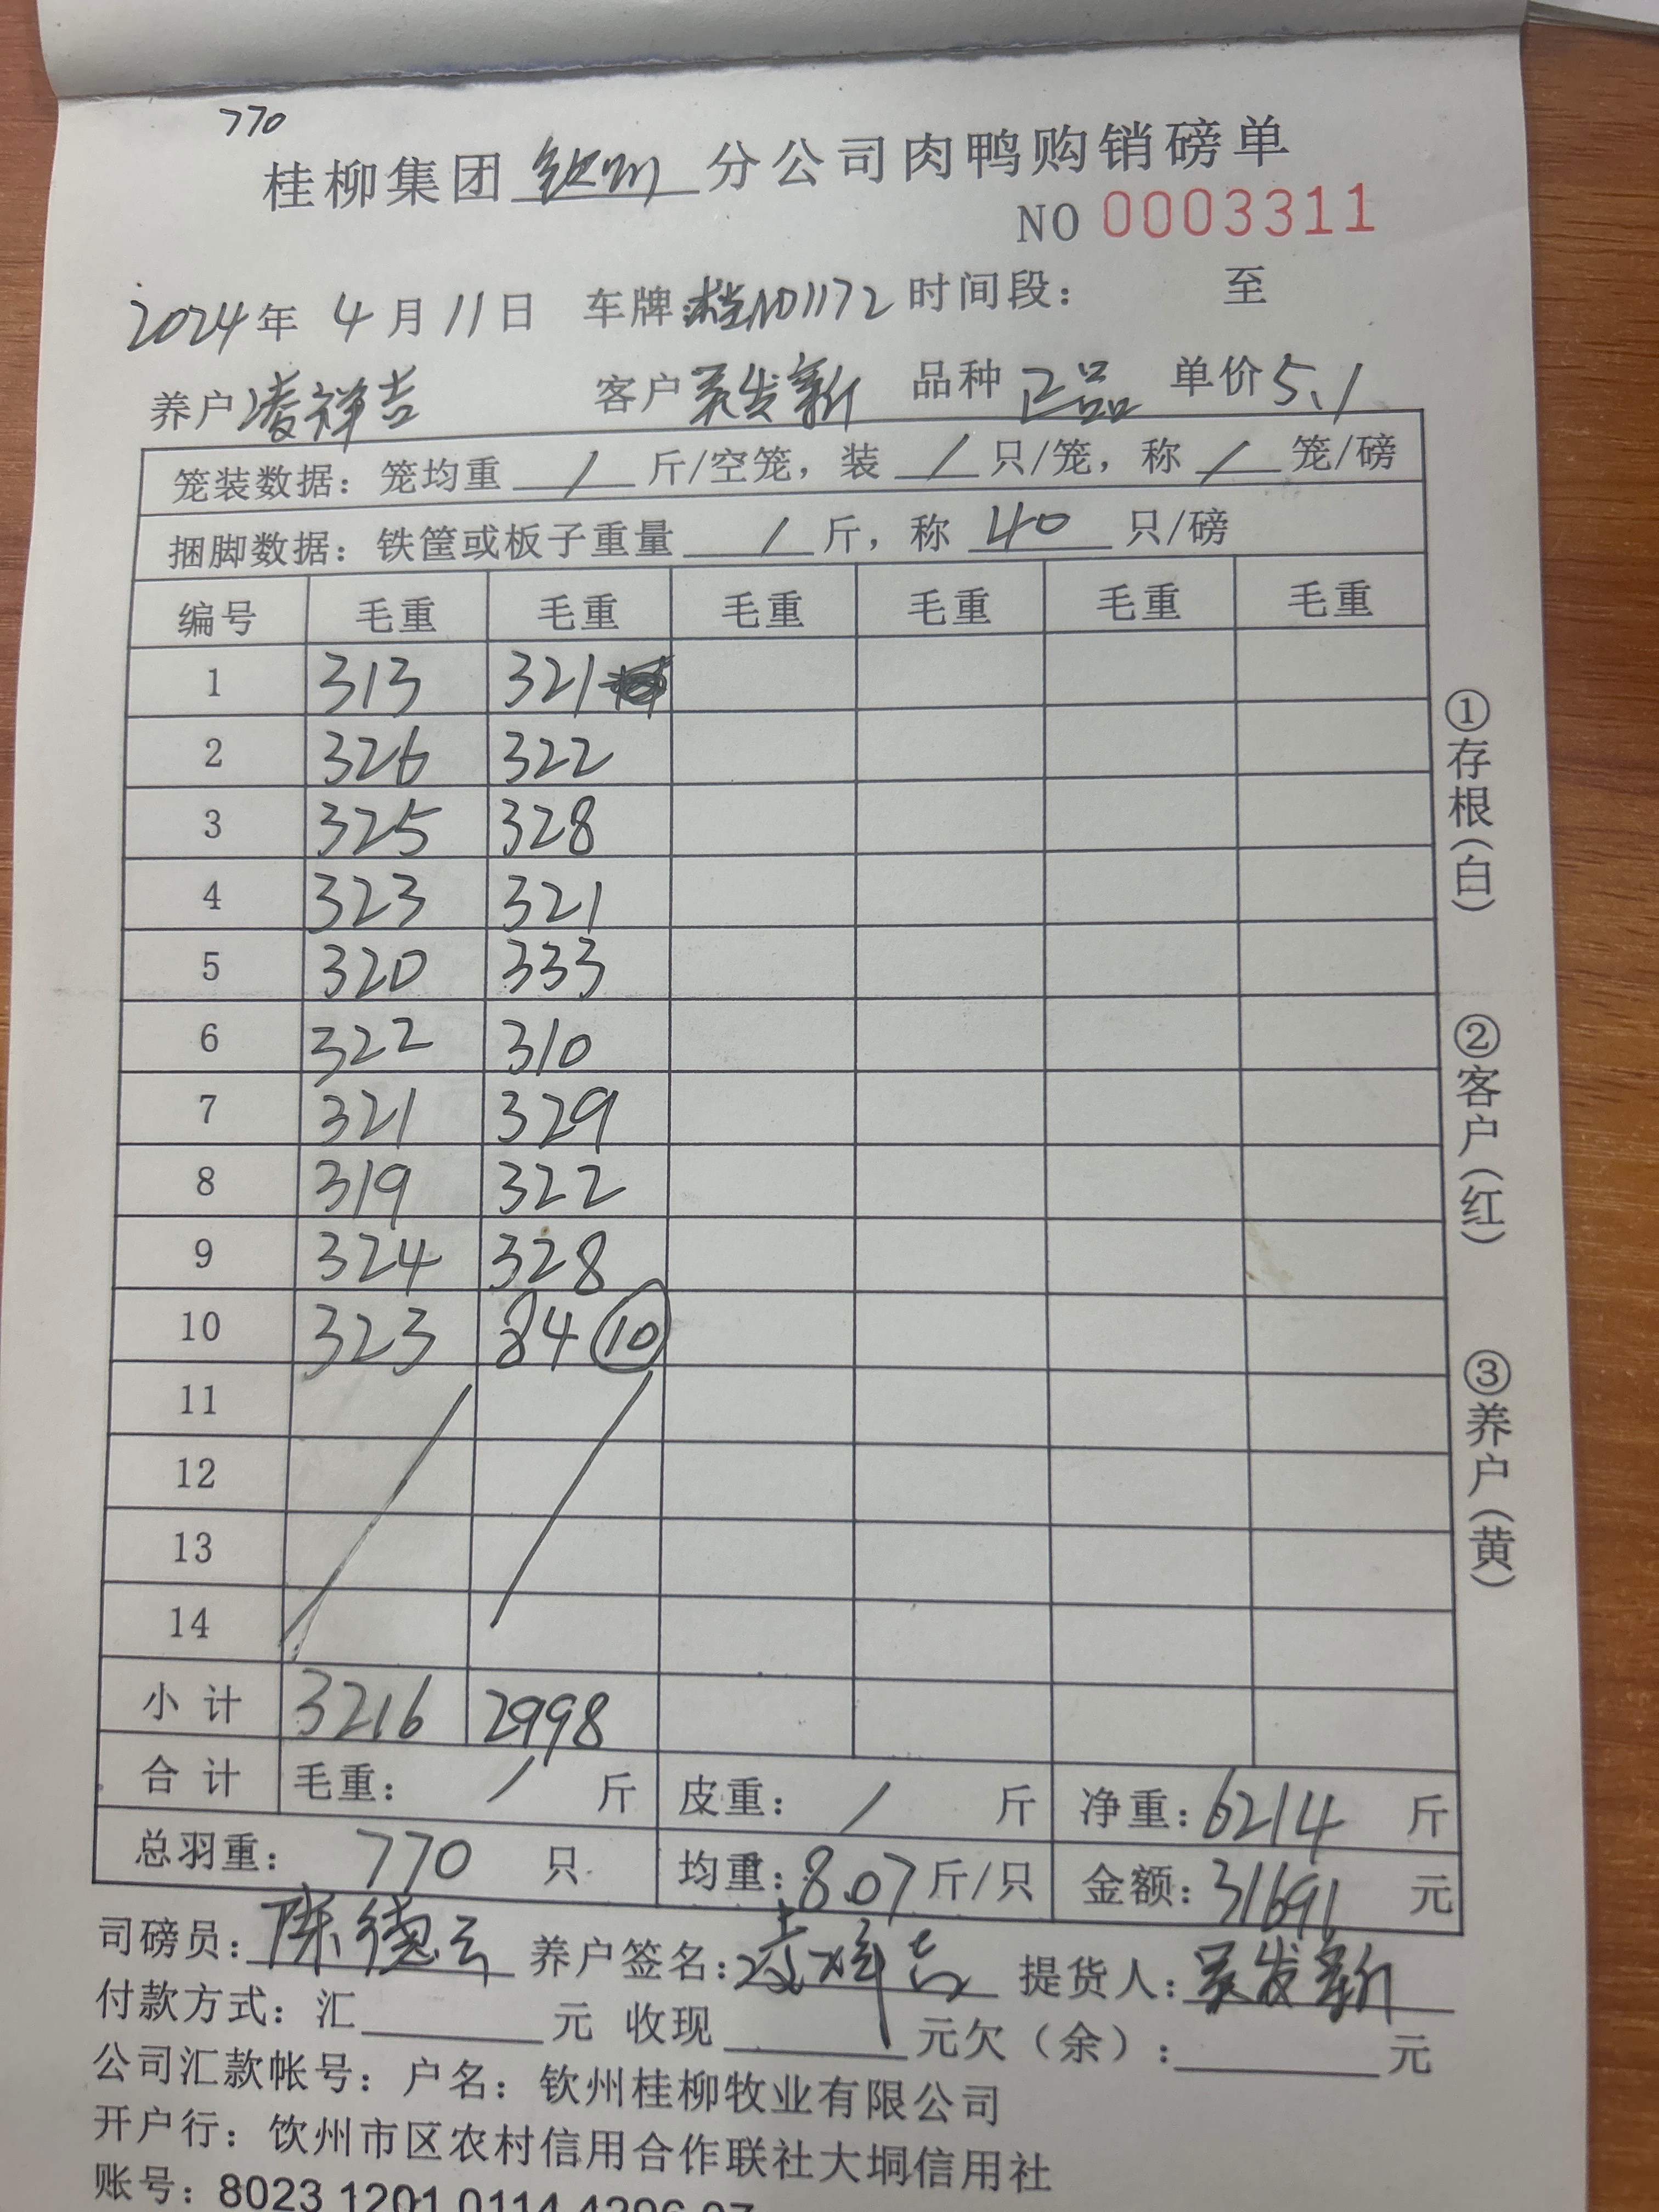 770
桂柳集团 钦州 分公司肉鸭购销磅单
NO 0003311
2024年 4月 11日 车牌:桂N01172 时间段: 至
养户 凌祥吉 客户 吴发新 品种 正品 单价 5.1
笼装数据: 笼均重 / 斤/空笼, 装 / 只/笼, 称 / 笼/磅
捆脚数据: 铁筐或板子重量 / 斤, 称 40 只/磅
编号 毛重 毛重 毛重 毛重 毛重 毛重
1 313 321
2 326 322
3 325 328
4 323 321
5 320 333
6 322 310
7 321 329
8 319 322
9 324 328
10 323 84 ⑩
11
12
13
14
小 计 3216 2998
合 计 毛重: / 斤 皮重: / 斤 净重: 6214 斤
总羽重: 770 只 均重: 8.07 斤/只 金额: 31691 元
司磅员: 陈德云 养户签名: 凌祥吉 提货人: 吴发新
付款方式: 汇 元 收现 元欠(余): 元
公司汇款帐号: 户名: 钦州桂柳牧业有限公司
开户行: 饮州市区农村信用合作联社大垌信用社
账号: 8023 1201 0114 4296 07
①存根(白)
②客户(红)
③养户(黄)